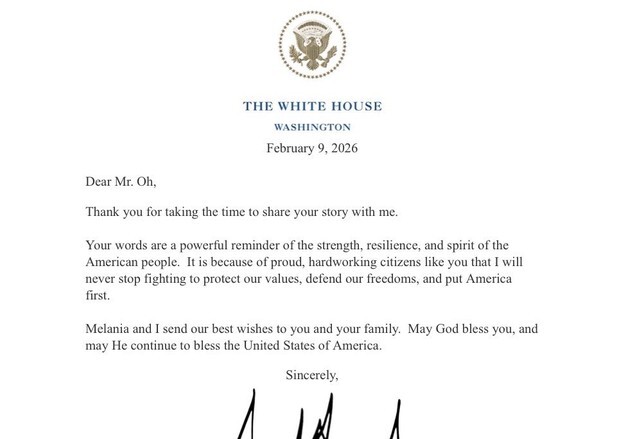 THE WHITE HOUSE
WASHINGTON
February 9, 2026
Dear Mr. Oh,
Thank you for taking the time to share your story with me.
Your words are a powerful reminder of the strength, resilience, and spirit of the
American people.  It is because of proud, hardworking citizens like you that I will
never stop fighting to protect our values, defend our freedoms, and put America
first.
Melania and I send our best wishes to you and your family.  May God bless you, and
may He continue to bless the United States of America.
Sincerely,